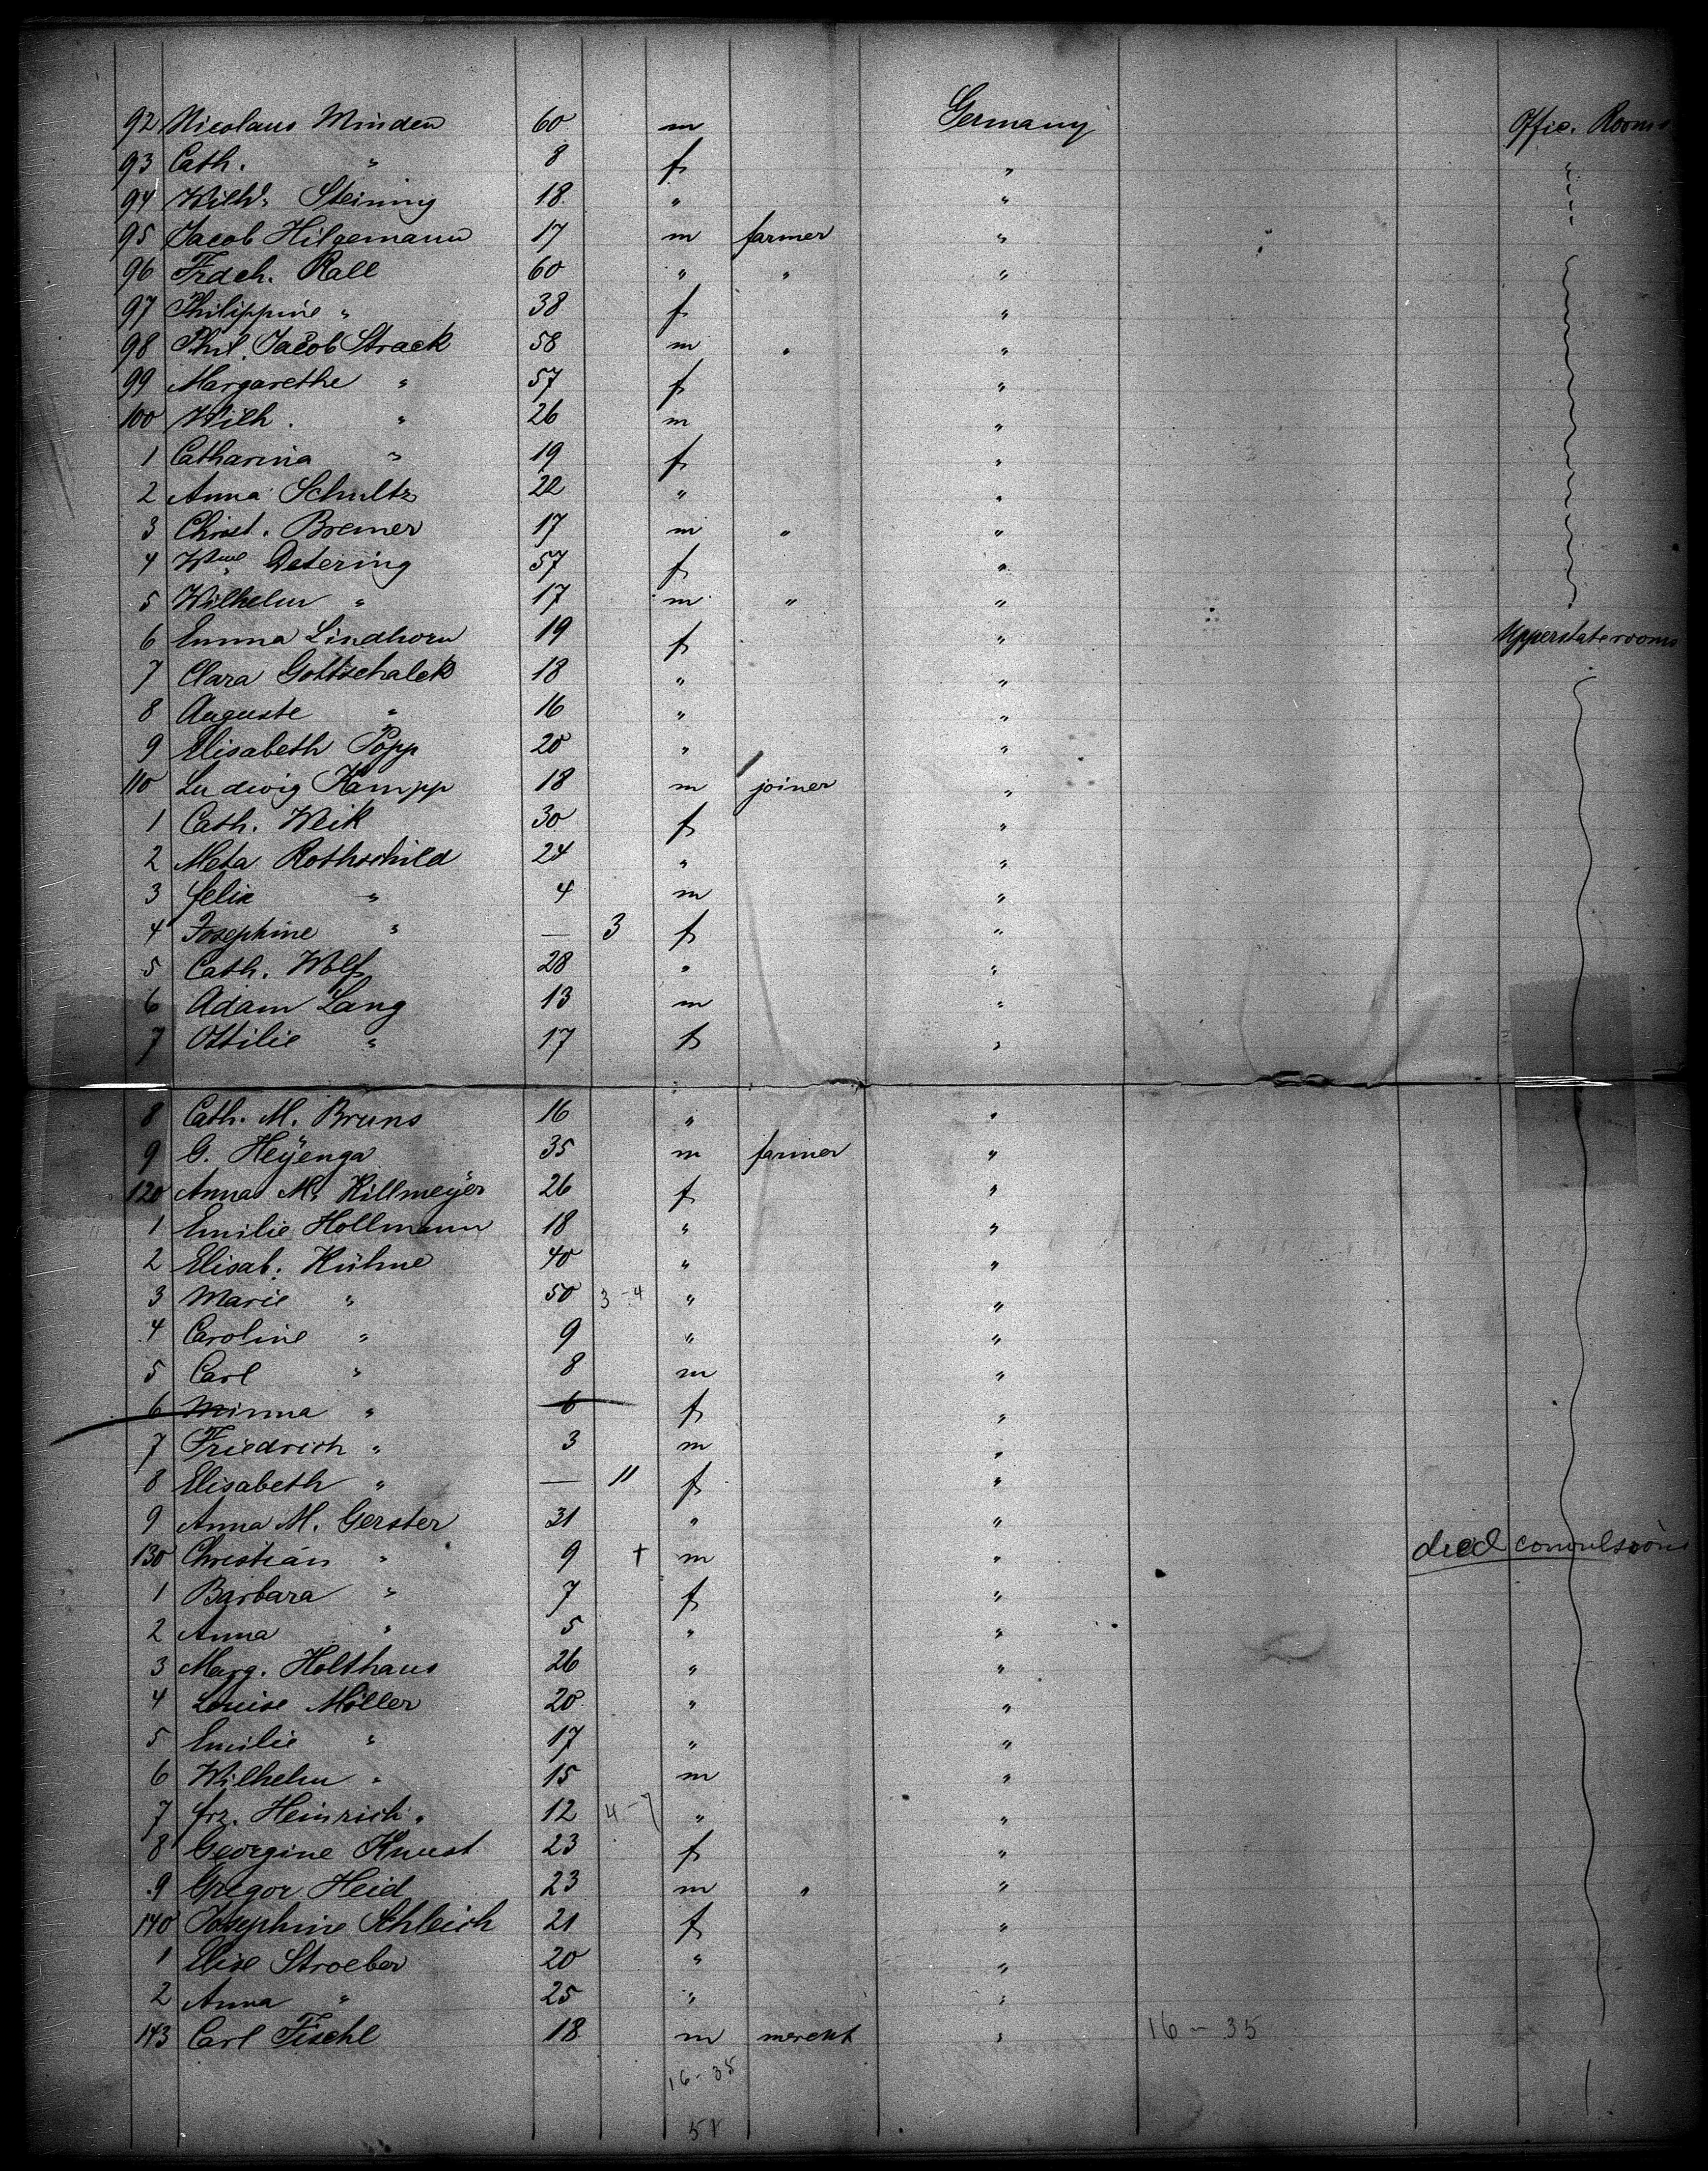 92 Nicolaus Minden 60 m Germany Offic. Rooms
93 Cath. " 8 f " "
94 Wilh. Steining 18 " "
95 Jacob Hilgemann 17 m farmer "
96 Frdch. Rall 60 " " "
97 Philippine " 38 f "
98 Phil. Jacob Strack 58 m " "
99 Margarethe " 57 f "
100 Wilh. " 26 m "
1 Catharina " 19 f "
2 Anna Schultz 22 " "
3 Christ. Bremer 17 m " "
4 Wme Detering 57 f "
5 Wilhelm " 17 m " "
6 Emma Lindhorn 19 f " Upperstaterooms
7 Clara Gottschalck 18 " "
8 Auguste " 16 " "
9 Elisabeth Popp 20 " "
110 Ludwig Kampp 18 m joiner "
1 Cath. Weik 30 f "
2 Meta Rothschild 24 " "
3 Felix " 4 m "
4 Josephine " — 3 f "
5 Cath. Wolf 28 " "
6 Adam Lang 13 m "
7 Ottilie " 17 f "
8 Cath. M. Bruns 16 " "
9 G. Heÿenga 35 m farmer "
120 Anna M. Killmeÿer 26 f "
1 Emilie Hollmann 18 " "
2 Elisab. Kühne 40 " "
3 Marie " 50 3-4 " "
4 Caroline " 9 " "
5 Carl " 8 m "
6 Minna " 6 f "
7 Friedrich " 3 m "
8 Elisabeth " — 11 f "
9 Anna M. Gerster 31 " "
130 Christian " 9 † m " died convulsions
1 Barbara " 7 f "
2 Anna " 5 " "
3 Marg. Holthaus 26 " "
4 Louise Möller 20 " "
5 Emilie " 17 " "
6 Wilhelm " 15 m "
7 Frz. Heinrich " 12 4-7 " "
8 Georgine Knust 23 f "
9 Gregor Heid 23 m " "
140 Josephine Schleich 21 f "
1 Elise Stroeber 20 " "
2 Anna " 25 " "
143 Carl Fischl 18 m mercht " 16-35
16-35